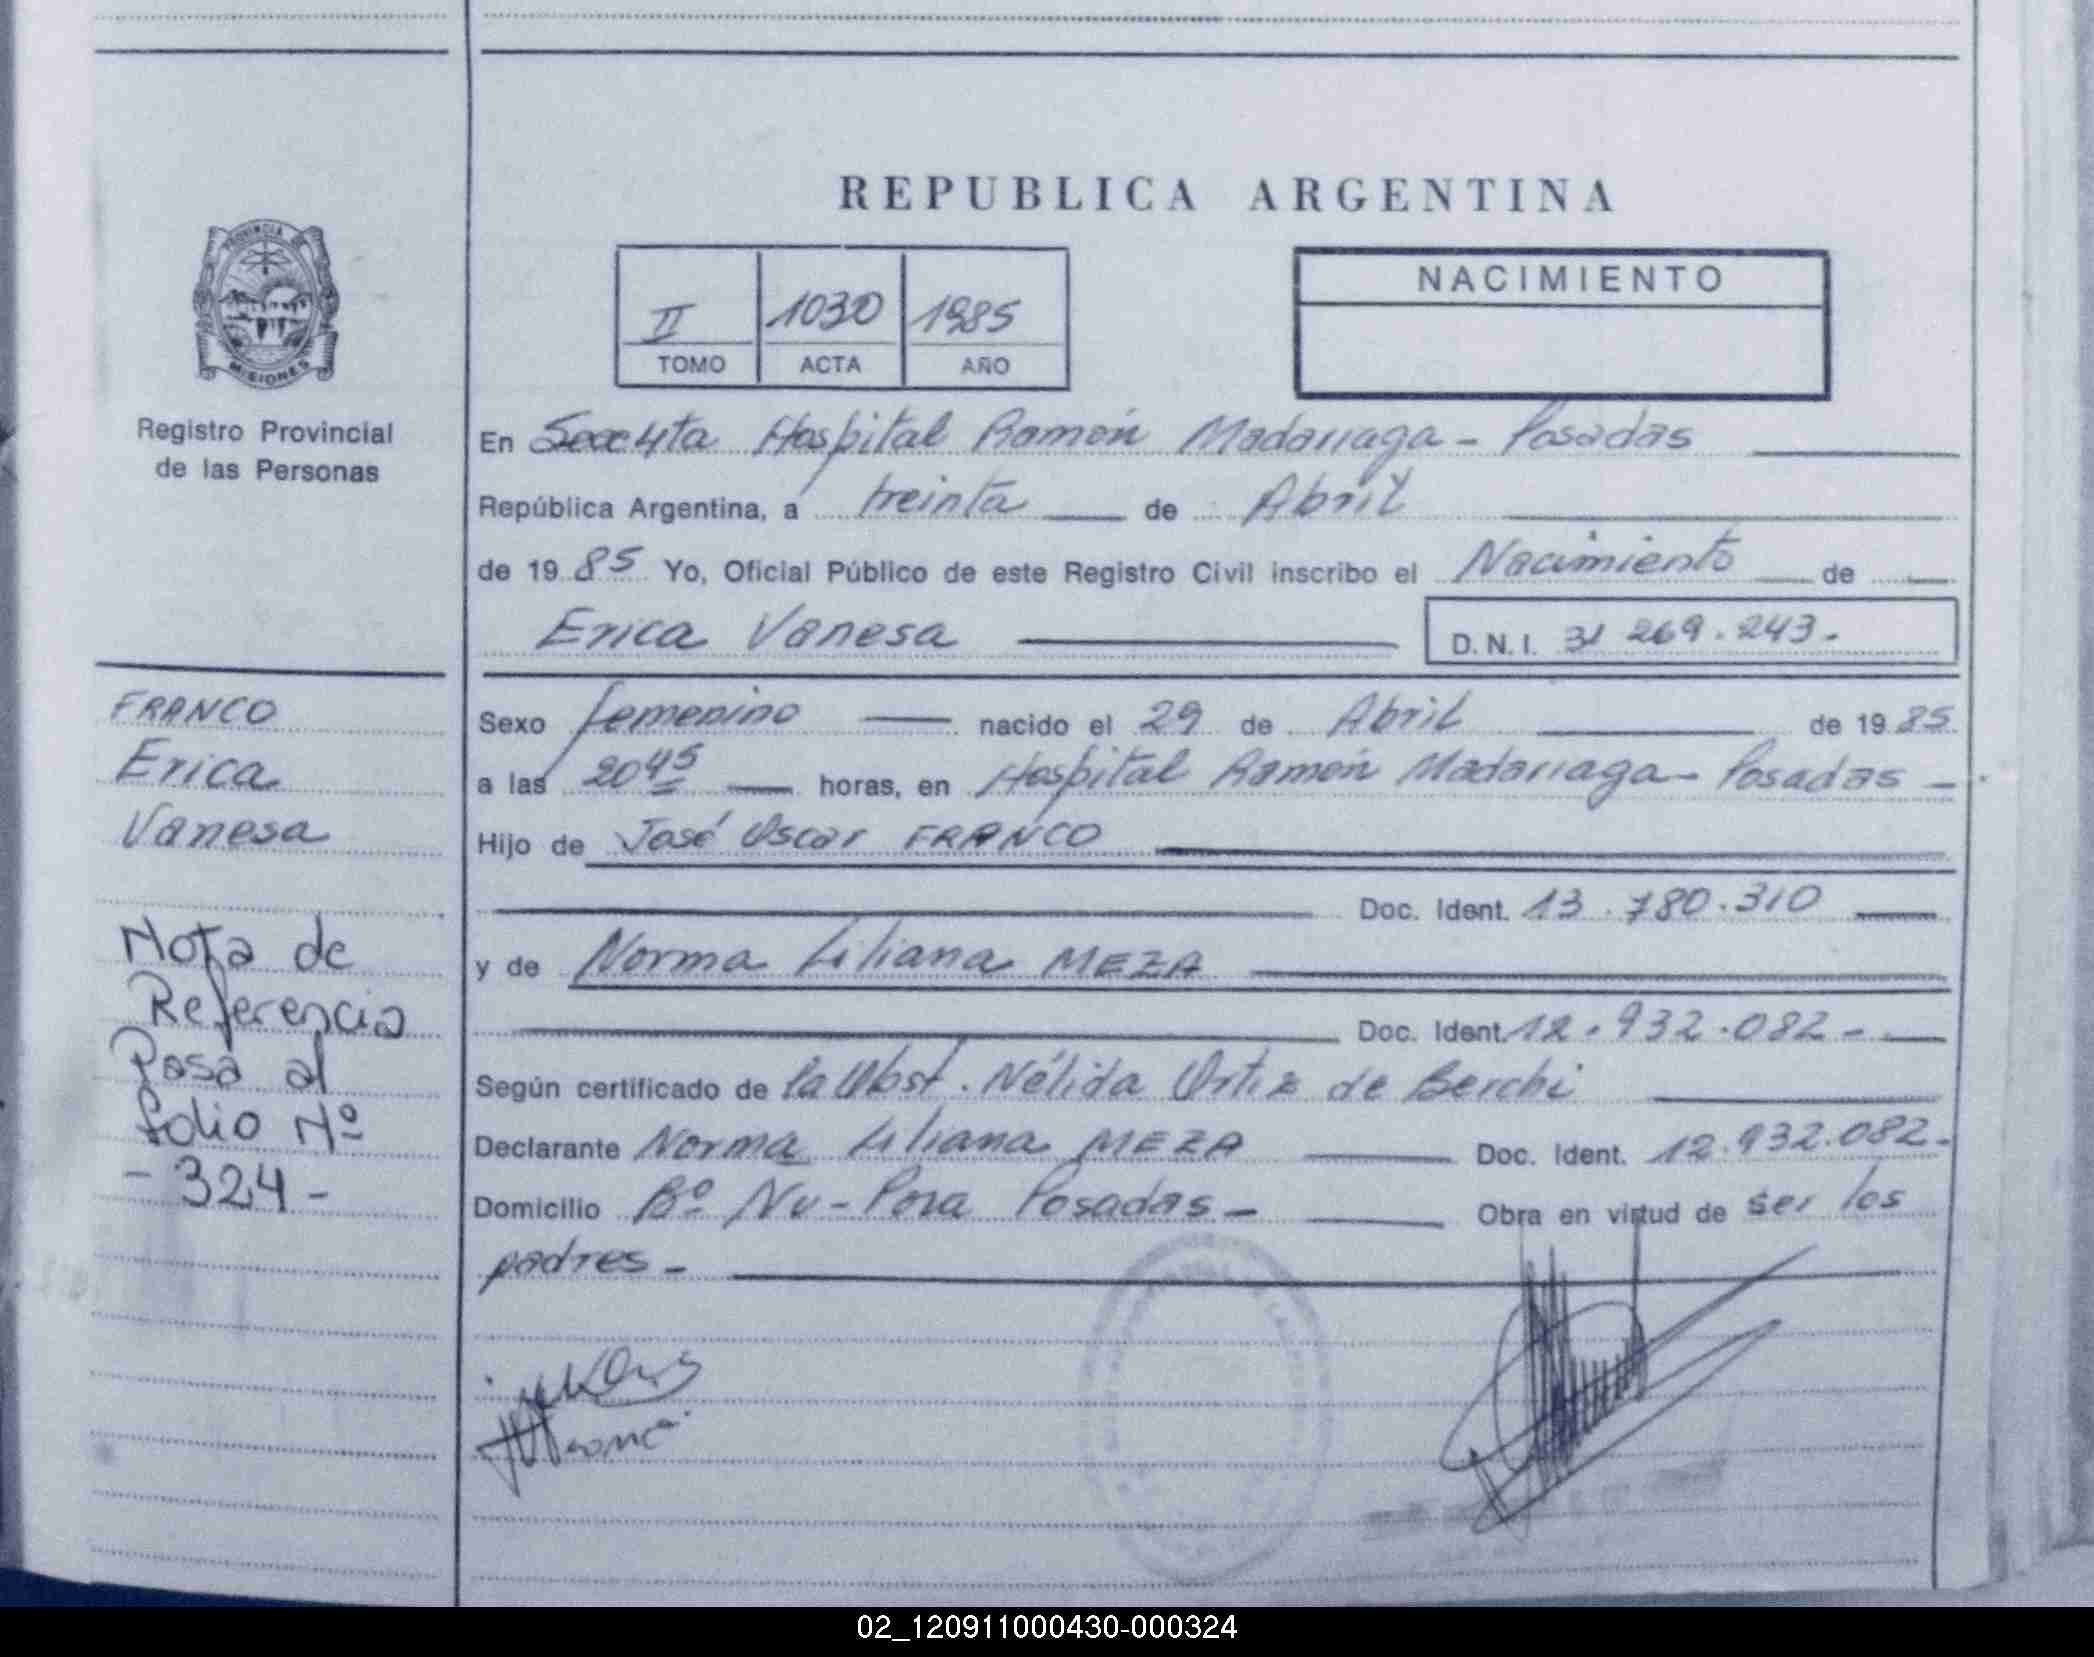 REPUBLICA ARGENTINA
PROVINCIA DE
MISIONES
Registro Provincial
de las Personas
II 1030 1985
TOMO ACTA AÑO
NACIMIENTO
En Secc 4ta Hospital Ramón Madariaga - Posadas
República Argentina, a treinta de Abril
de 1985 Yo, Oficial Público de este Registro Civil inscribo el Nacimiento de
Erica Vanesa
D.N.I. 31 269.243.-
FRANCO
Erica
Vanesa
Nota de
Referencia
Pasa al
folio Nº
- 324 -
Sexo femenino nacido el 29 de Abril de 1985
a las 20 45 horas, en Hospital Ramón Madariaga - Posadas -
Hijo de José Oscar FRANCO
Doc. Ident. 13.780.310
y de Norma Liliana MEZA
Doc. Ident. 12.932.082 -
Según certificado de la Obst. Nélida Ortiz de Berchi
Declarante Norma Liliana MEZA Doc. Ident. 12.932.082-
Domicilio Bº Ñu-Pora Posadas - Obra en virtud de ser los
padres -
02_120911000430-000324